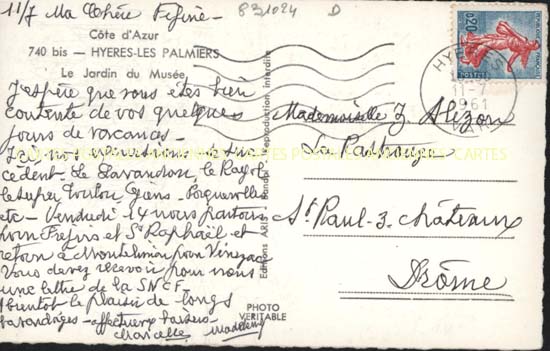 11/7 Ma Chère Fifine -
831024 D
Côte d'Azur
740 bis — HYERES-LES PALMIERS
Le Jardin du Musée
J'espère que vous êtes bien
contente de vos quelques
jours de vacances -
Ici nos excursions se suc
cèdent. Le Lavandou, le Rayol
le super Toulon, Giens. Porquerolles
etc - Vendredi 14 nous partons
pour Fréjus et St Raphaël et
retour à Montélimar pour
Vous devez recevoir pour nous
une lettre de la SNCF.
Bientôt le plaisir de longs
bavardages - affectueux baisers
Madeleine
Editions
Reproduction interdite
PHOTO
VERITABLE
Mademoiselle F. Alizon
La
St Paul-3-châteaux
Drôme
HYERES
11-7
1961
VAR
0,20
POSTES
REPUBLIQUE FRANÇAISE
CARTES